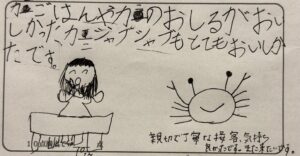 カニごはんやカニのおしるがおい
しかったカニシャブシャブもとてもおいしか
たです。
親切で丁寧な接客、気持ち
良かったです。また来たいです。